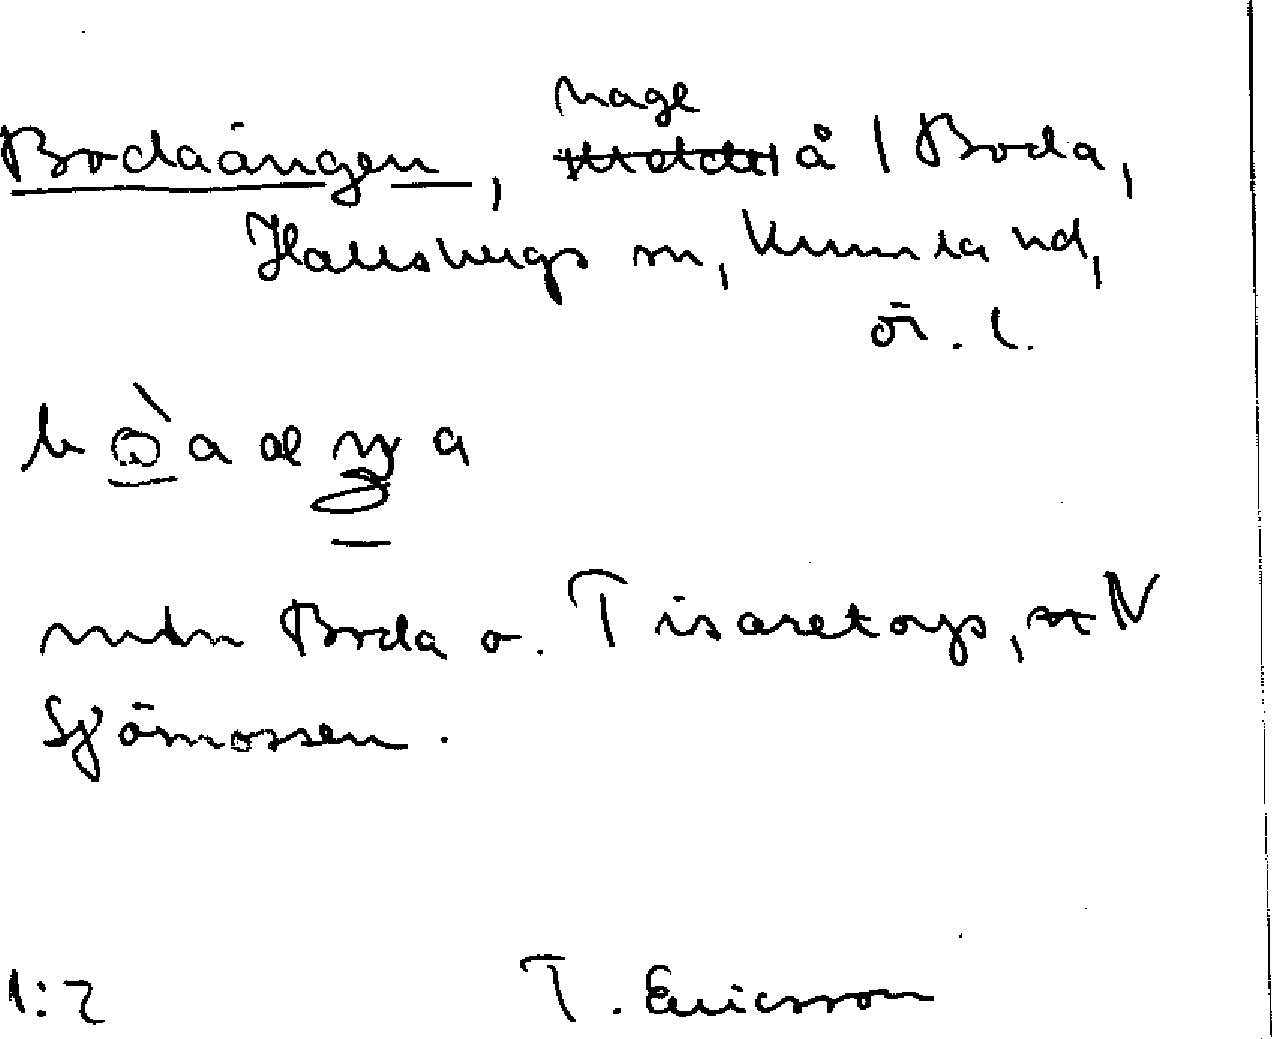 hage
Bodaängen, å / Boda,
Hallsbergs sn, Kumla hd,
ör. l.
mellan Boda o. Tisaretorp, N
Sjömossen.
1:2 T. Ericsson